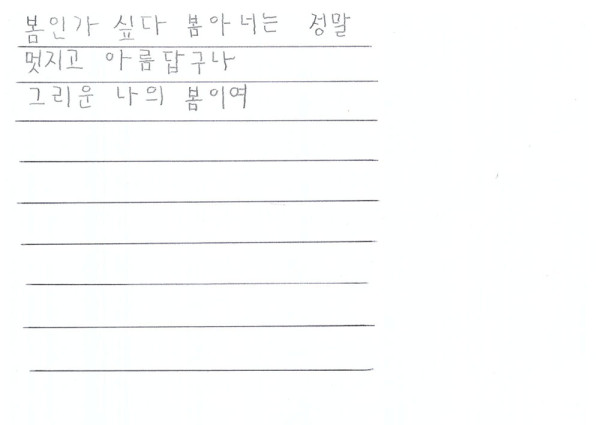 봄인가 싶다 봄아 너는 정말
멋지고 아름답구나
그리운 나의 봄이여